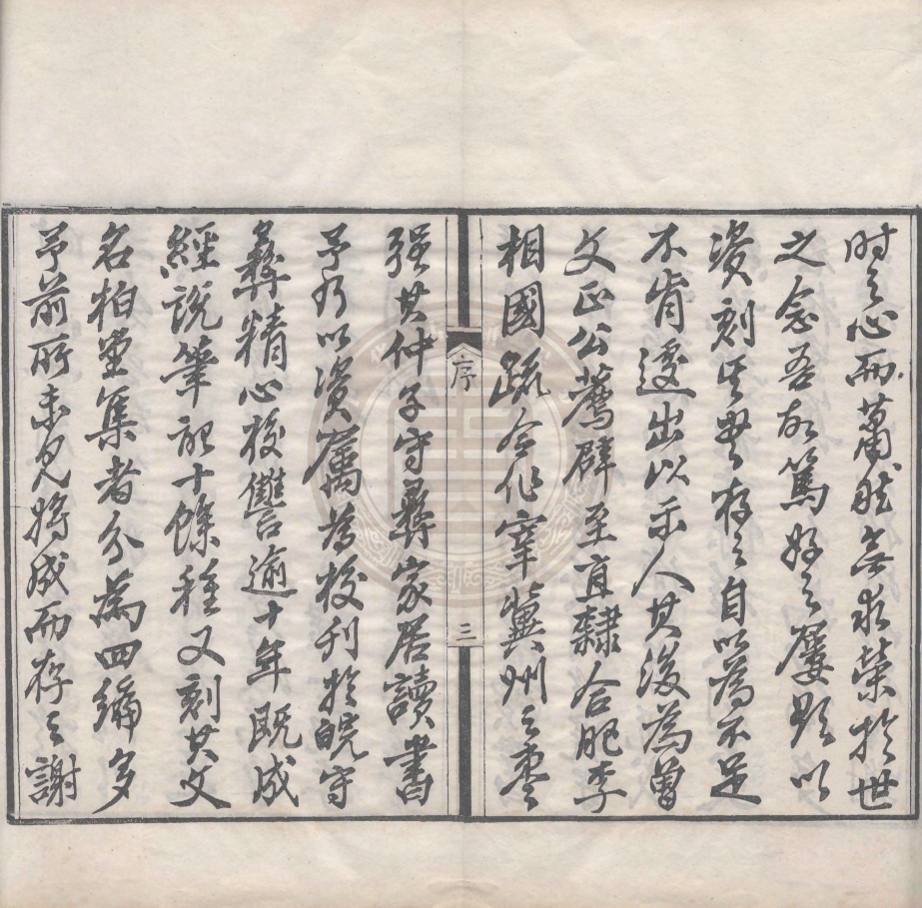 時之心而蕭然無求榮於世
之念吾故篤好之屢欲以
資刻其書存之自以為不足
不肯遽出以示人其後為曾
文正公薦辟至直隸合肥李
相國疏令作宰冀州之棗
序
三
强其仲子守彝家居讀書
予乃以資屬為校刊於皖守
彝精心校讐逾十年既成
經說筆記十餘種又刻其文
名柏堂集者分為四編多
予前所未見將成而存之謝